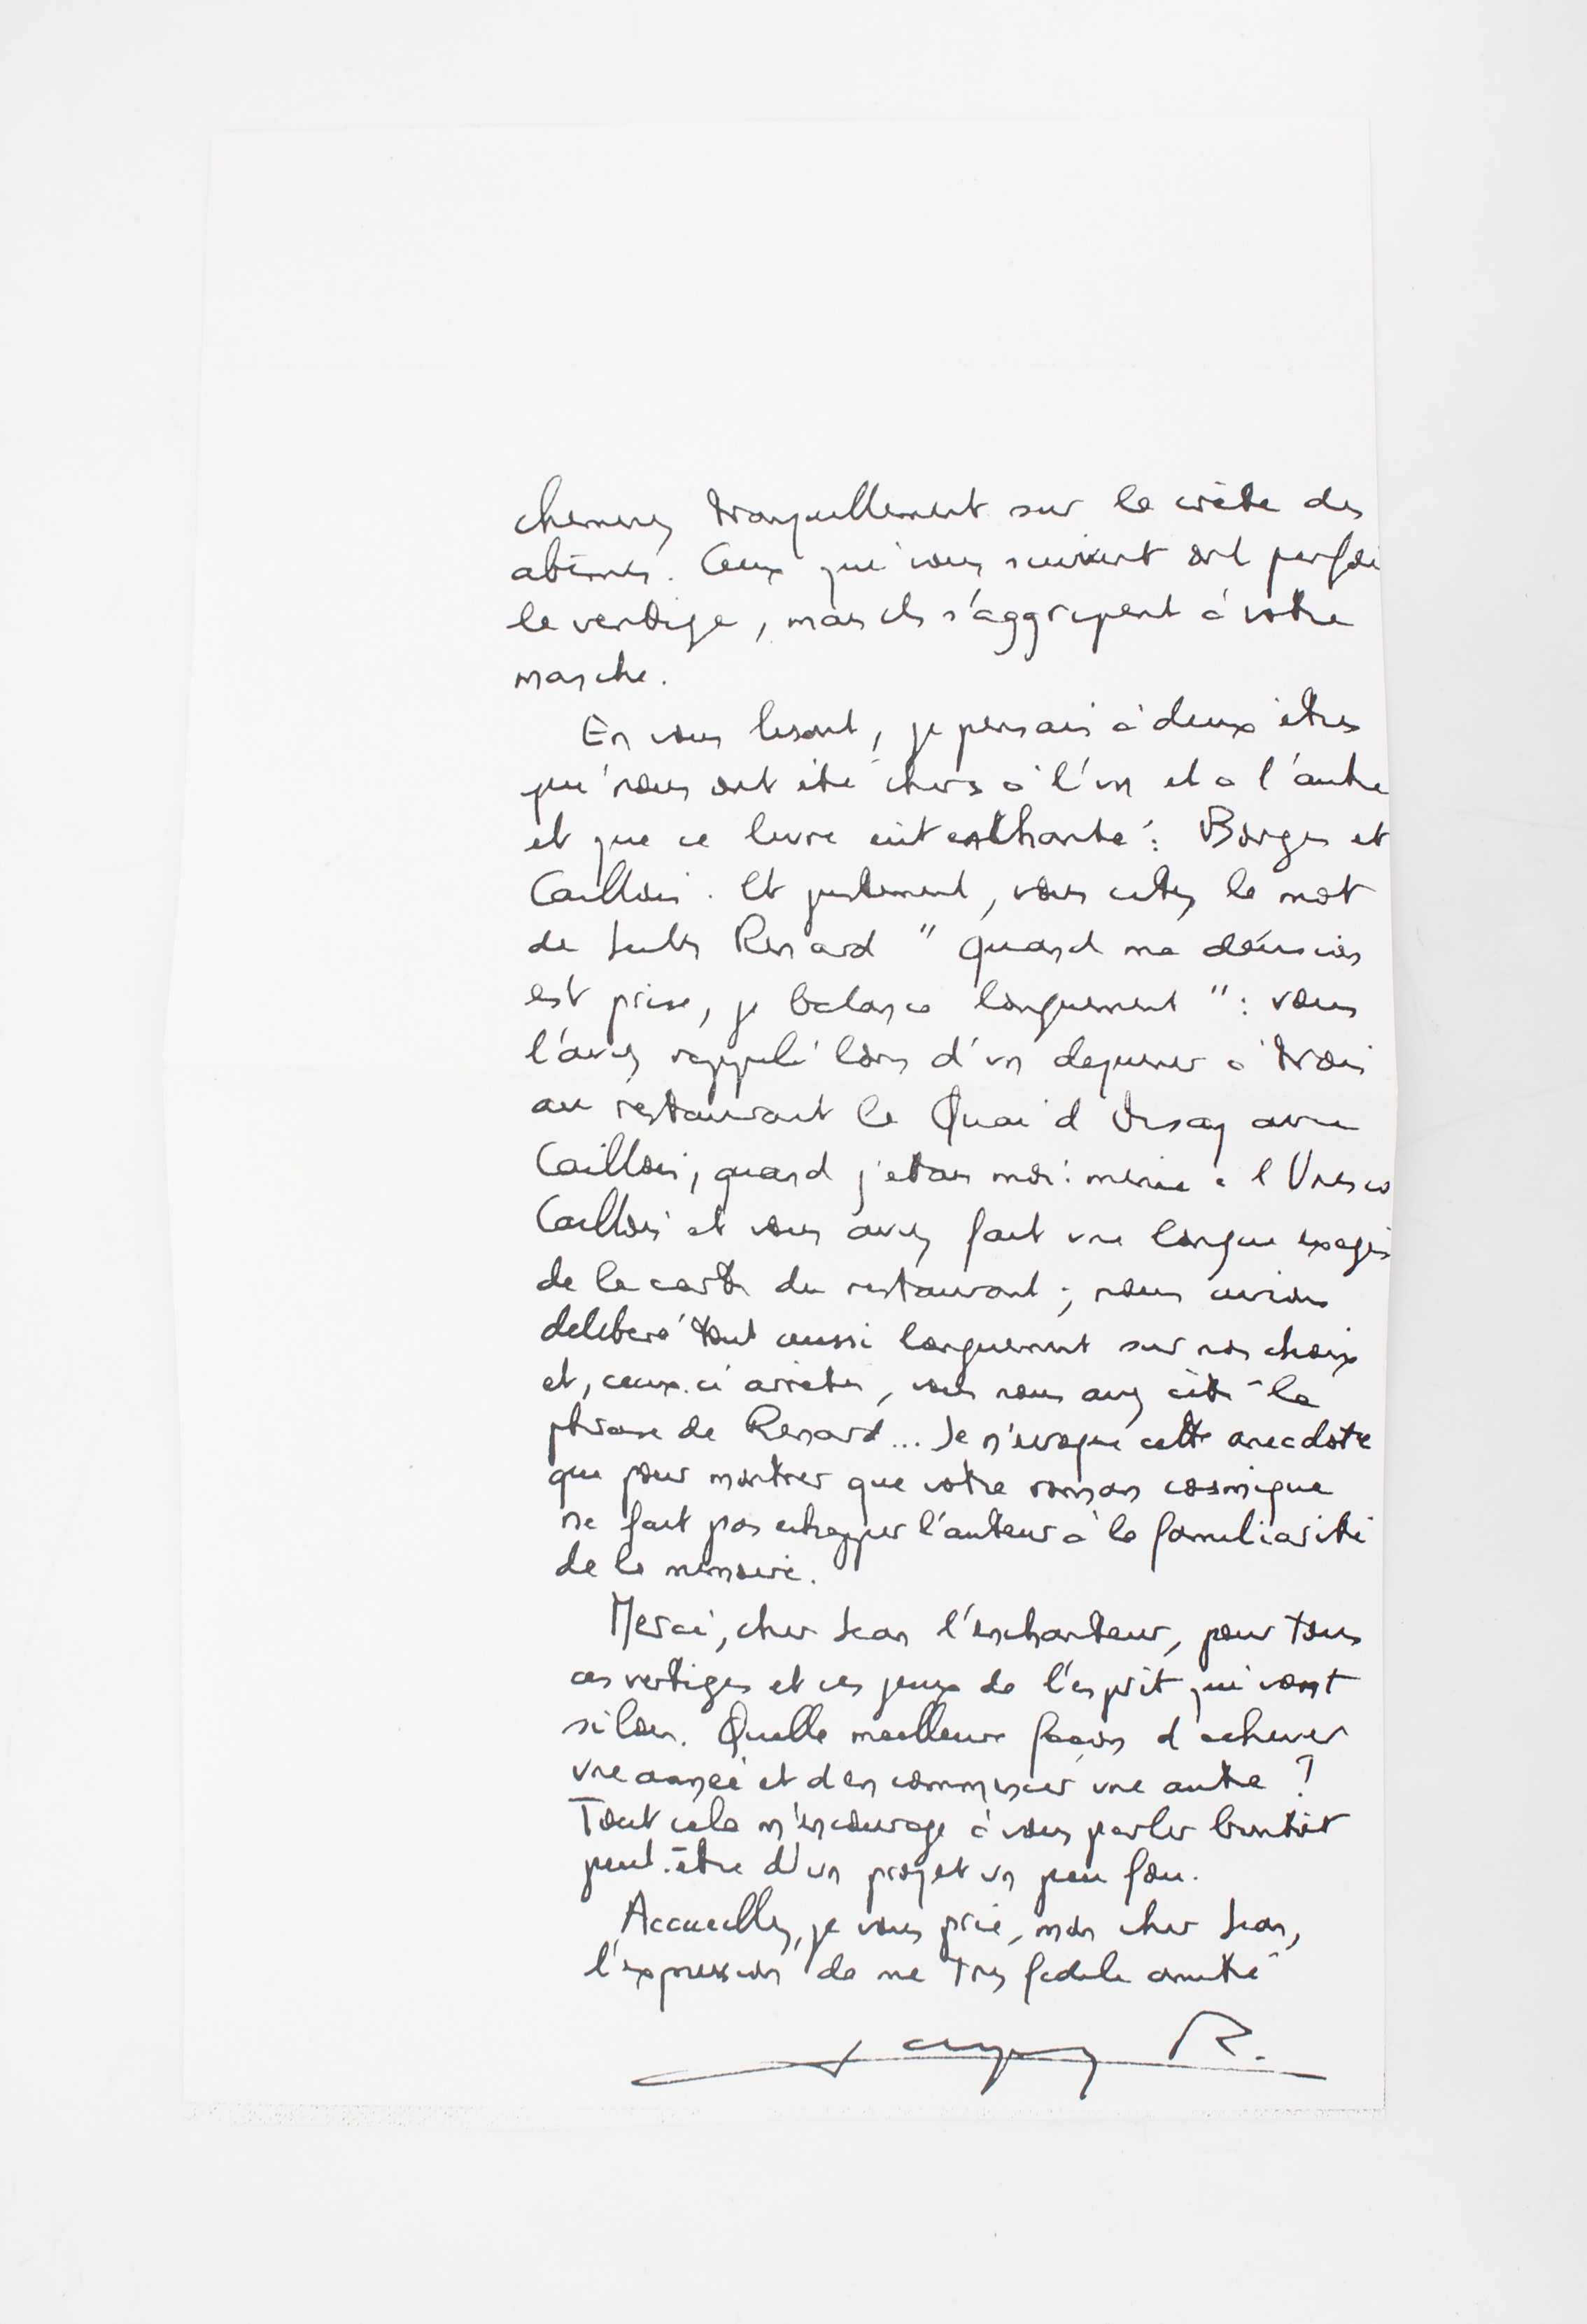 cheminez tranquillement sur la crête des
abîmes. Ceux qui vous suivent ont parfoi
le vertige, mais ils s'aggripent à votre
marche.
En vous lisant, je pensais à deux êtres
qui nous ont été chers à l'un et à l'autre
et que ce livre eût enchanté : Borges et
Caillois. Et justement, vous citez le mot
de Jules Renard "Quand ma décision
est prise, je balance longuement" : vous
l'avez rappelé lors d'un dejeuner à trois
au restaurant le Quai d'Orsay avec
Caillois, quand j'etais moi-même à l'Unesco
Caillois et vous avez fait une longue exegès
de la carte du restaurant ; nous avions
deliberé tout aussi longuement sur nos choix
et, ceux-ci arretés, vous nous avez cité la
phrase de Renard... Je n'evoque cette anecdote
que pour montrer que votre roman cosmique
ne fait pas echapper l'auteur à la familiarité
de la memoire.
Merci, cher Jean l'enchanteur, pour tous
ces vertiges et ces jeux de l'esprit qui vont
si loin. Quelle meilleure façon d'achever
une année et d'en commencer une autre ?
Tout cela m'encourage à vous parler bientôt
peut-être d'un projet un peu fou.
Accueillez, je vous prie, mon cher Jean,
l'expression de ma très fidele amitié
Jacques R.